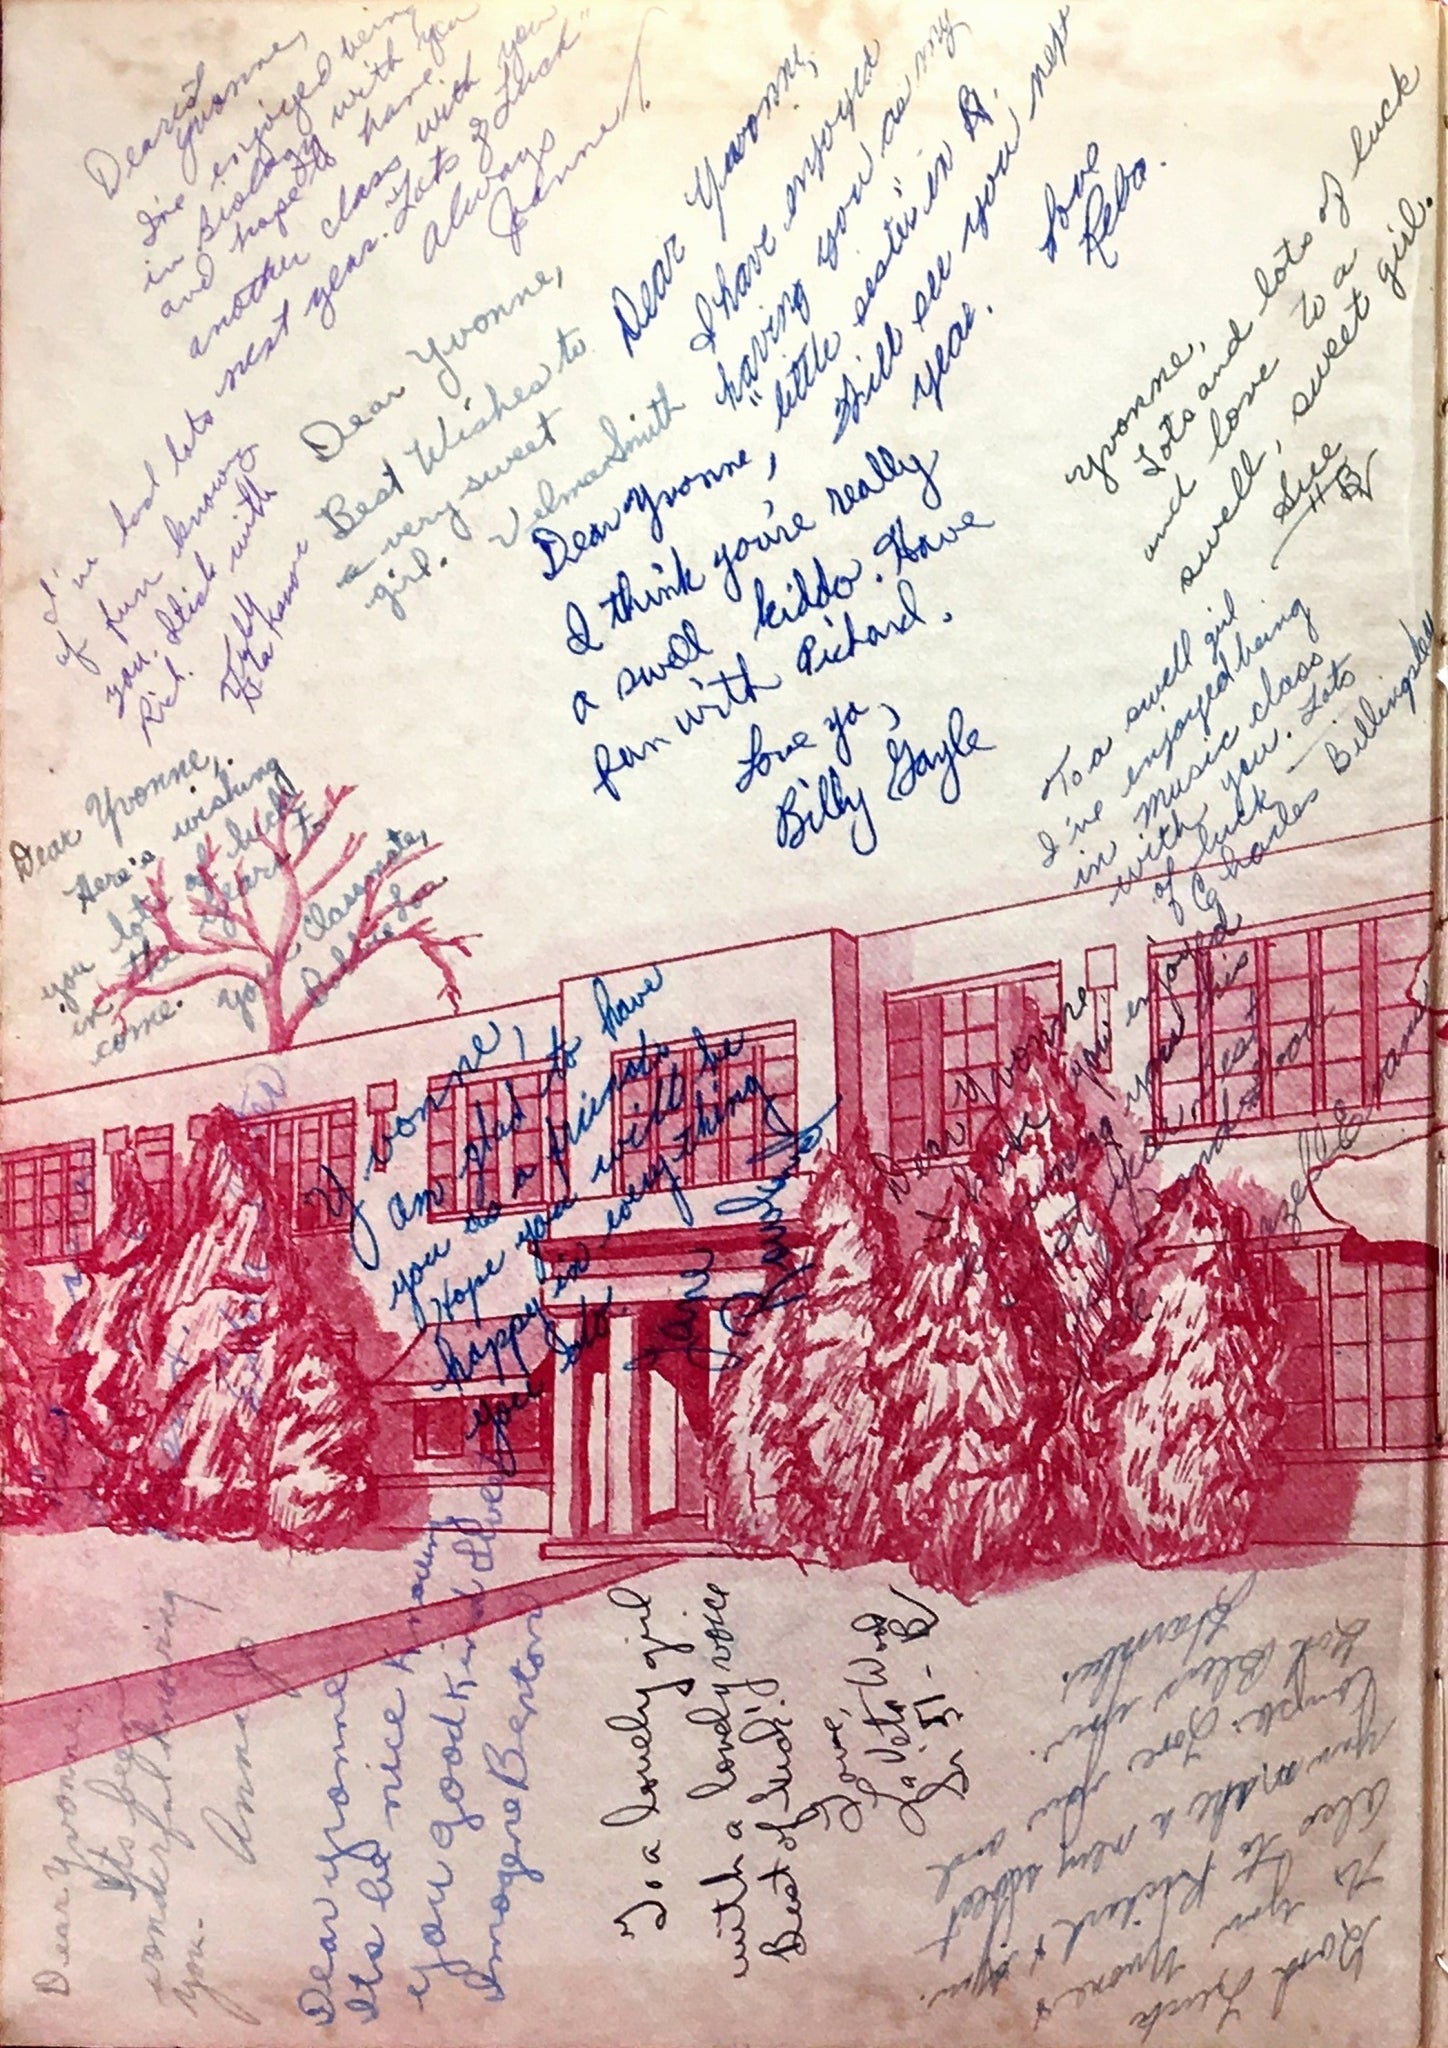 Dearest
Yvonne,
I've enjoyed being
in Biology with you
and hope to have
another class with you
next year. Lots of Luck"
Always
Joanne
Dear Yvonne,
I have enjoyed
having you as my
"little sester" in B.
Will see you next
year.
Love
Reba.
Yvonne,
Lots and lots of luck
and love to a
swell, sweet girl.
Sue
HB
Dear Yvonne,
Best Wishes to
a very sweet
girl. Velma Smith
I've had lots
of fun knowing
you. Stick with
Rich.
Dear Yvonne,
I think you're really
a swell kiddo. Have
fun with Richard.
Love ya,
Billy Gayle
To a swell girl
I've enjoyed being
in music class
with you. Lots
of luck
Charles Billingsley
Dear Yvonne,
Here's wishing
you lots of luck
in the years to
come. Your classmate,
Yvonne,
am glad to have
you as a friend
Hope you will be
happy in everything
you do.
Dear Yvonne
enjoyed
this
year
Dear Yvonne,
Its been
wonderful knowing
you.
Anna Jo
Dear Yvonne
Its be nice knowing
you good kind
Imogene Benton
To a lovely girl
with a lovely voice
Best of luck,
Love,
LaVeta Wood
Jr. 51 - B
Good Luck
to you Yvonne &
also to Richard &
you make a very sweet
couple. Love you and
God Bless you.